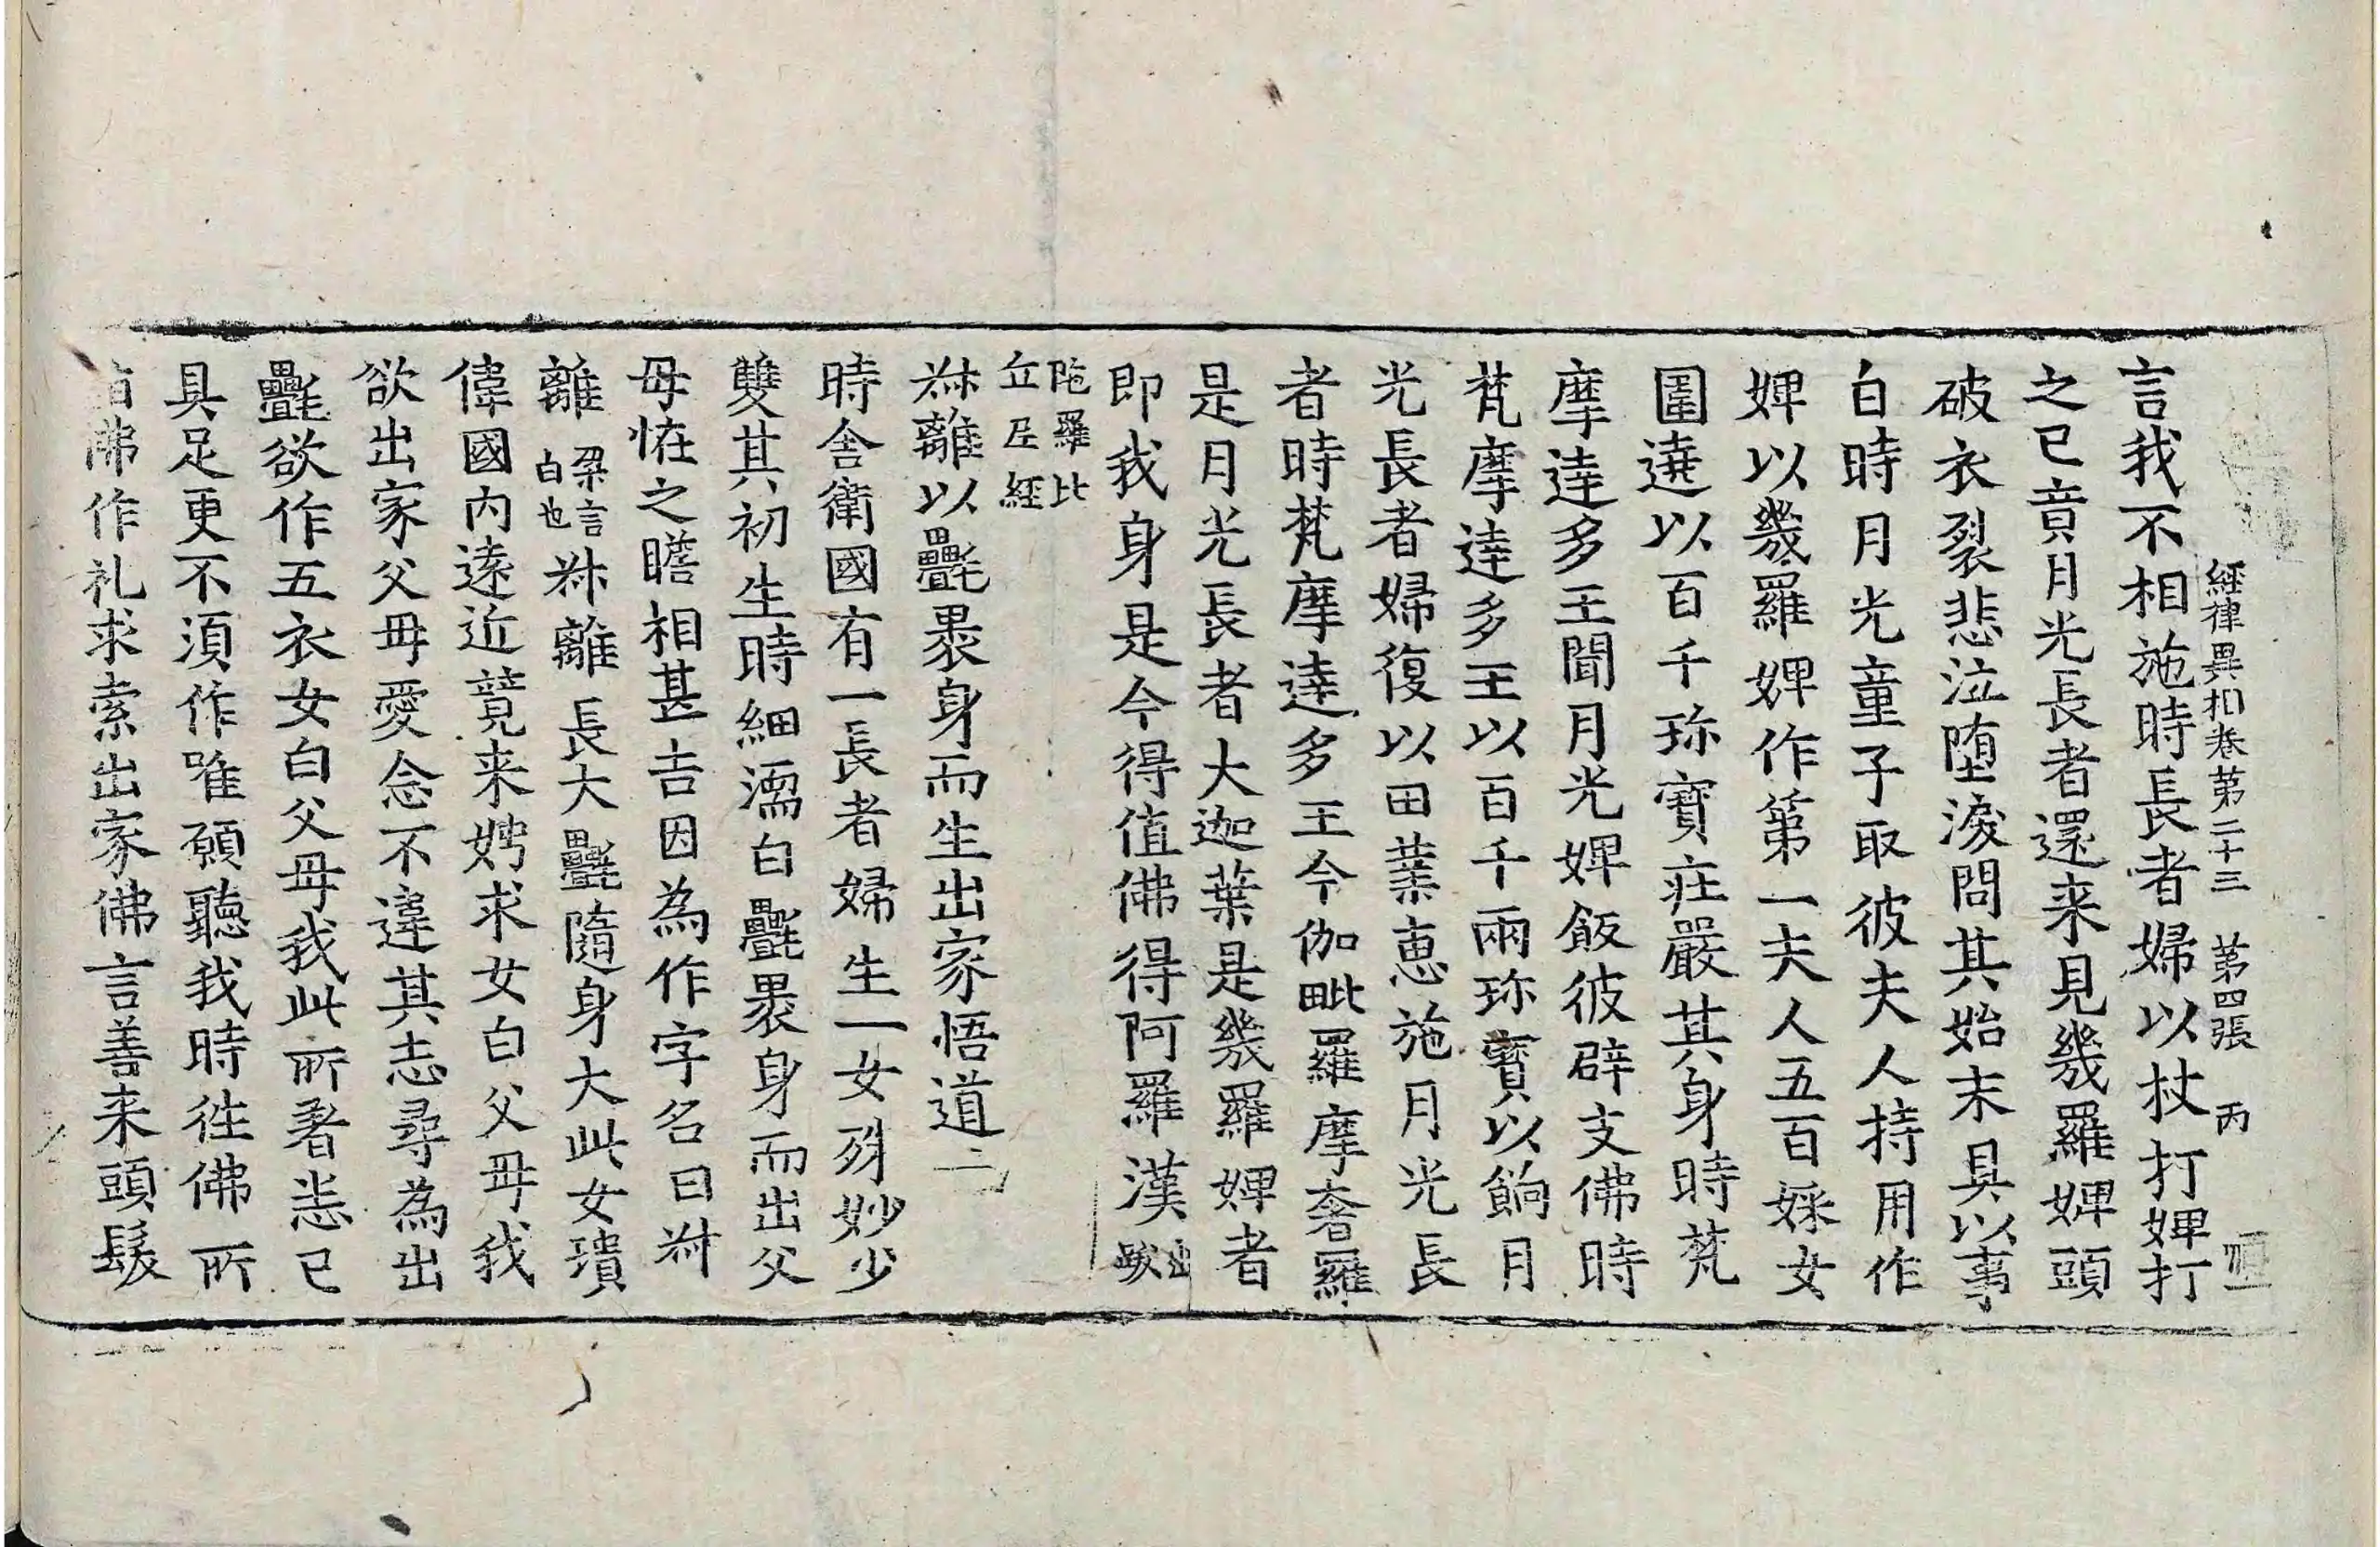 經律異相卷第二十三 第四張 丙
言我不相施時長者婦以杖打婢打
之已竟月光長者還来見幾羅婢頭
破衣裂悲泣堕淚問其始末具以事
白時月光童子取彼夫人持用作
婢以幾羅婢作第一夫人五百婇女
圍遶以百千珎寳莊嚴其身時梵
摩達多王聞月光婢飯彼辟支佛時
梵摩達多王以百千兩珎寳以餉月
光長者婦復以田業惠施月光長
者時梵摩達多王今伽毗羅摩奢羅
是月光長者大迦葉是幾羅婢者
即我身是今得值佛得阿羅漢出䟦
陁羅比
丘尼經
叔離以㲲裹身而生出家悟道二
時舍衛國有一長者婦生一女殊妙少
雙其初生時細濡白㲲裹身而出父
母恠之瞻相甚吉因為作字名曰叔
離梁言白也叔離長大㲲隨身大此女瓌
偉國内逺近竸来娉求女白父毋我
欲出家父毋愛念不違其志尋為出
㲲欲作五衣女白父毋我此所著恙已
具足更不湏作唯願聽我時往佛所
佛作礼求索出家佛言善来頭髮